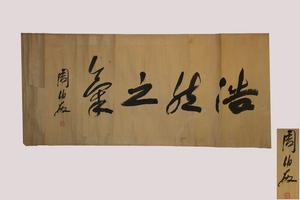 浩然之氣
周伯敏
周伯敏